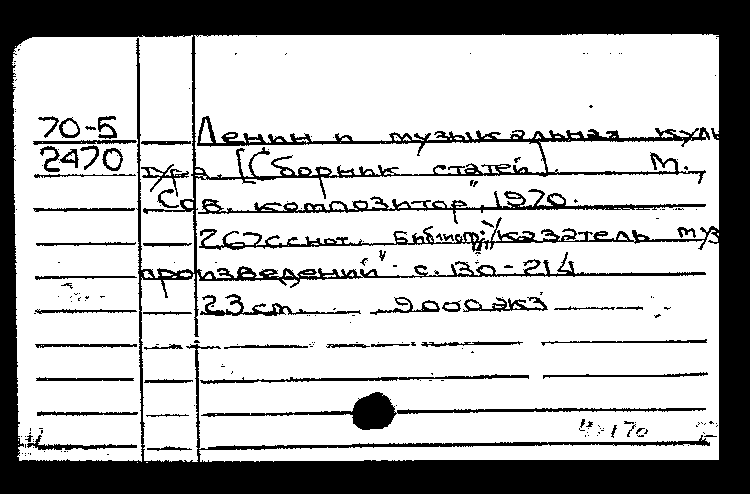 70-5 Ленин и музыкальная куль
2470 тура. [Сборник статей]. М.,
"Сов. композитор", 1970.
267с с нот. Библиогр: "Указатель муз
произведений" с. 130-214
23 см. 9000 экз